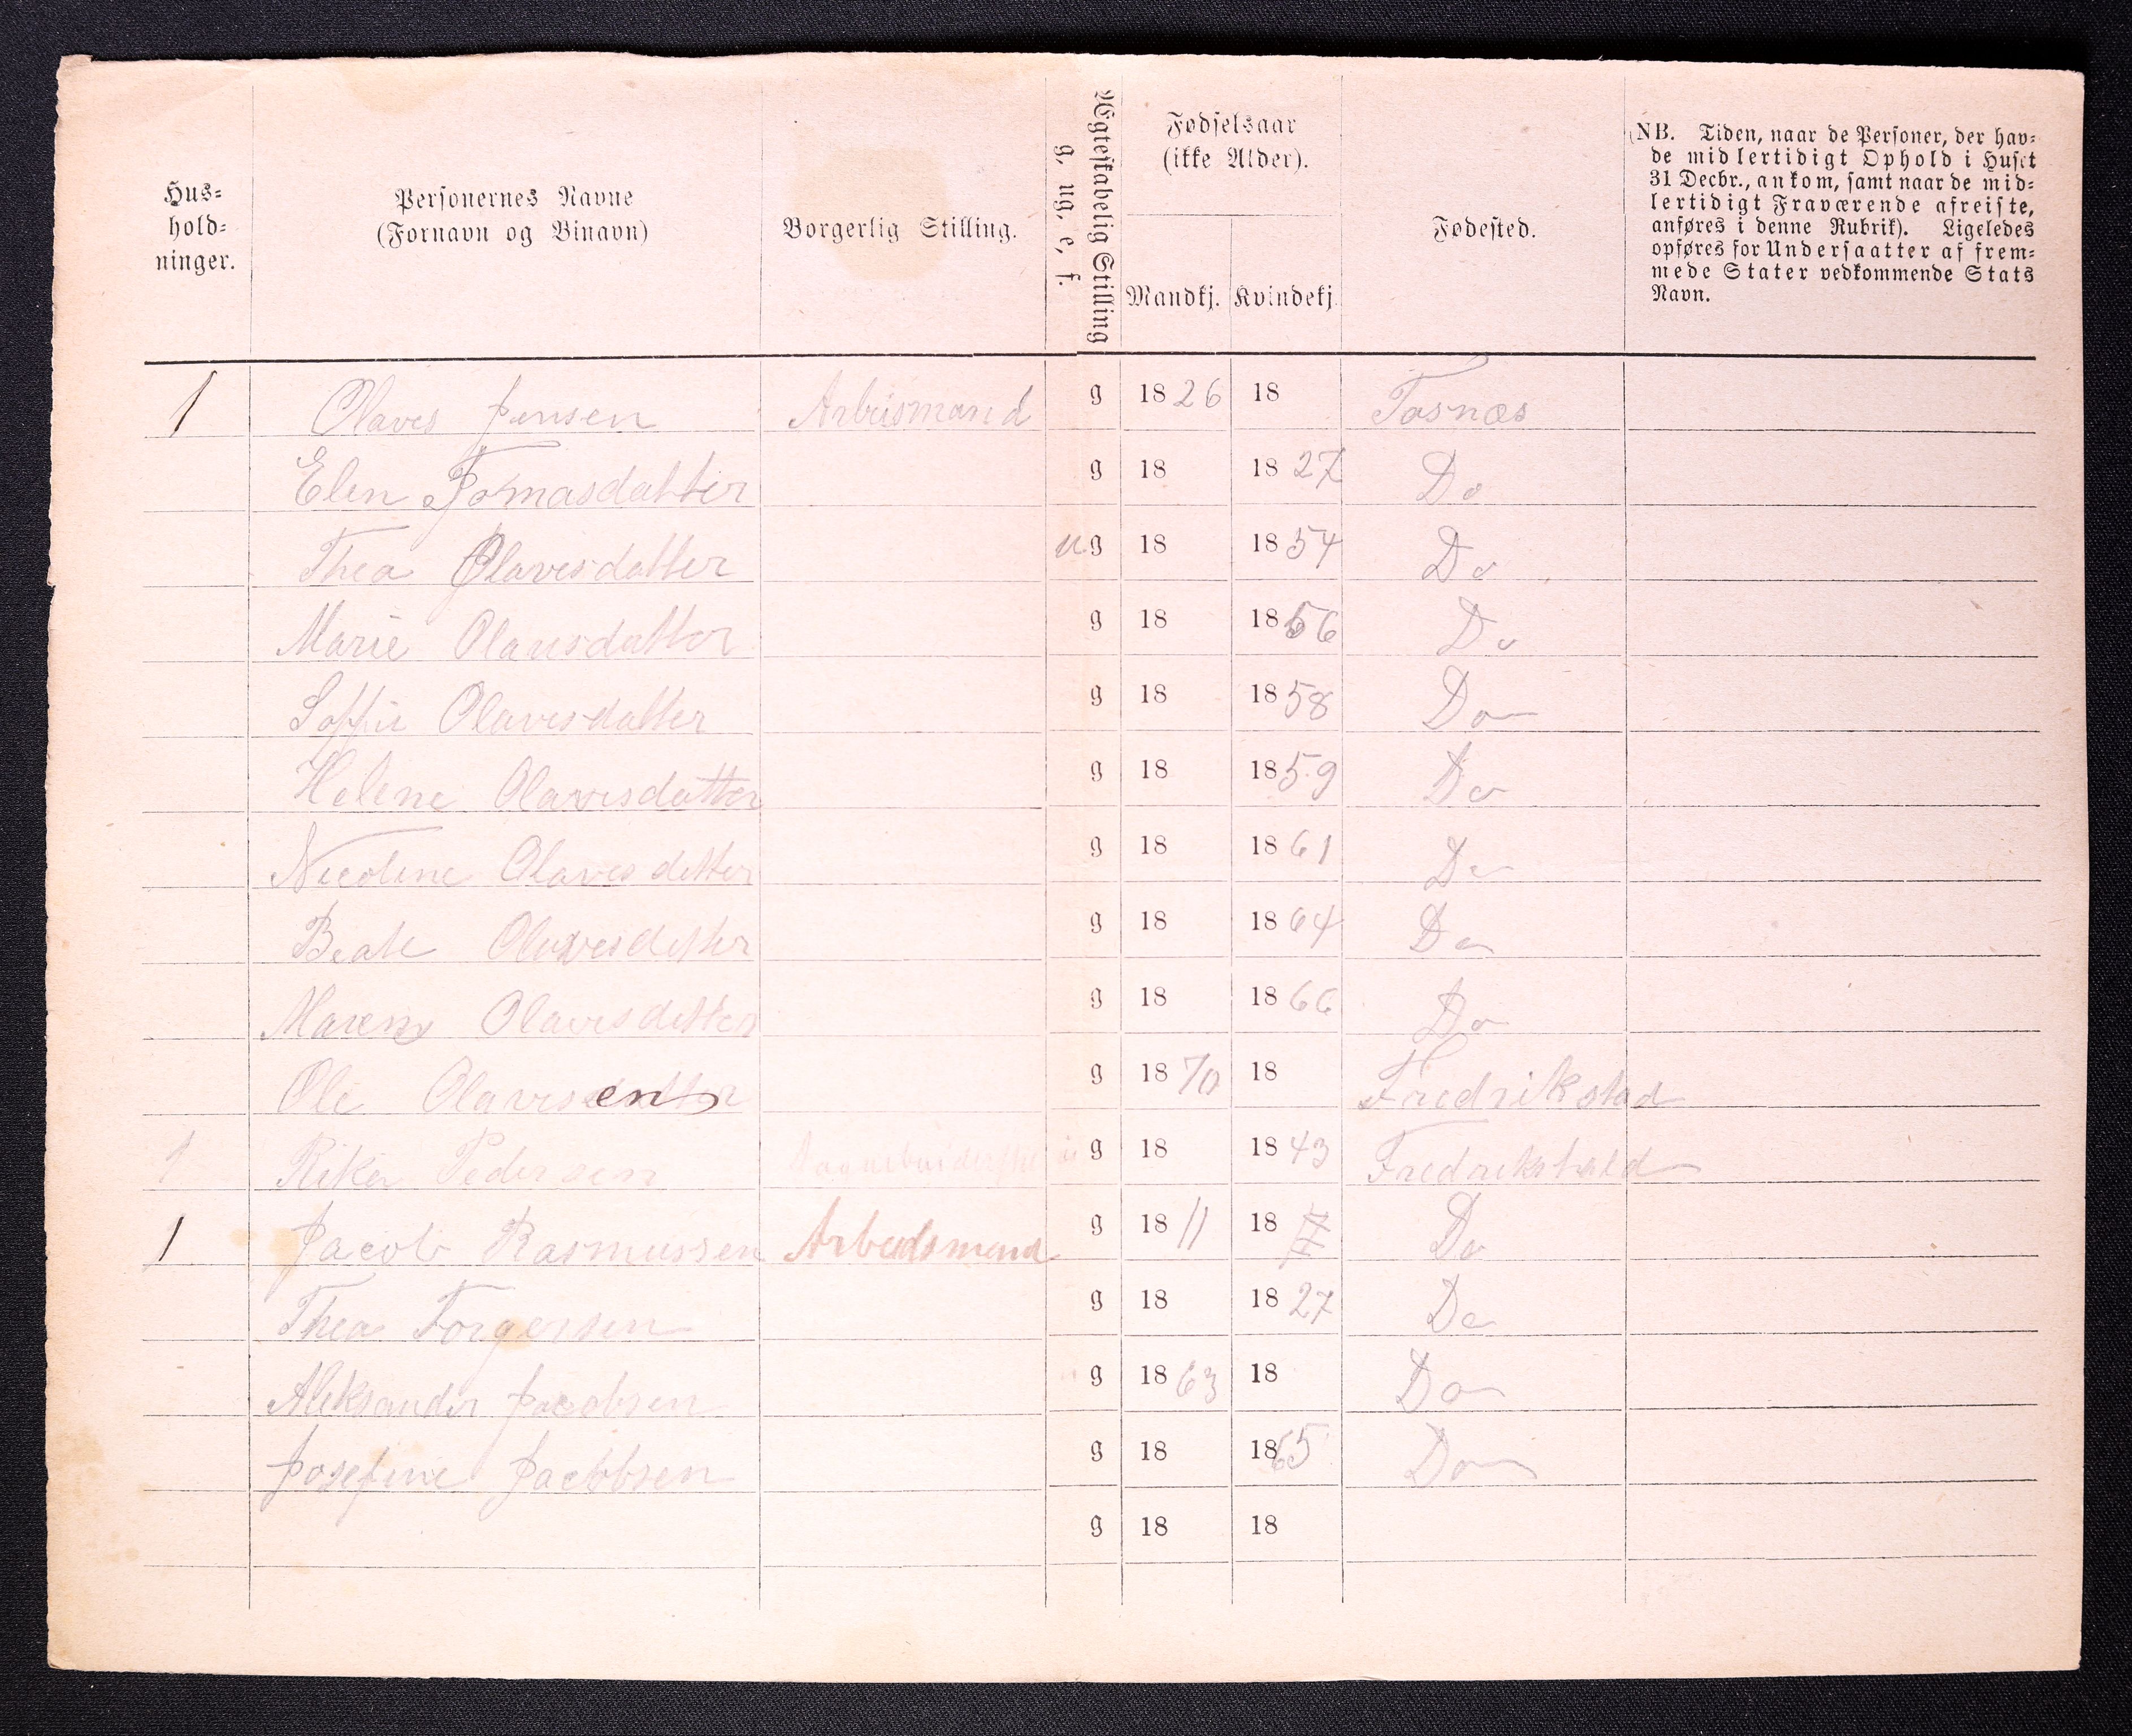 Hus=
hold=
ninger.
Personernes Navne
(Fornavn og Binavn)
Borgerlig Stilling.
Ægteskabelig Stilling
g, ug, e, f.
Fødselsaar
(ikke Alder).
Mandkj. Kvindekj.
Fødested.
(NB. Tiden, naar de Personer, der hav=
de midlertidigt Ophold i Huset
31 Decbr., ankom, samt naar de mid=
lertidigt Fraværende afreiste,
anføres i denne Rubrik). Ligeledes
opføres for Undersaatter af frem=
mede Stater vedkommende Stats
Navn.
1 Olaves Jensen Arbeismand g 1826 18 Tosnæs
Elen Tomasdatter g 18 1827 Do
Thea Olavesdatter u.g 18 1854 Do
Marie Olavesdatter g 18 1856 Do
Soffie Olavesdatter g 18 1858 Do
Helene Olavesdatter g 18 1859 Do
Nicoline Olavesdatter g 18 1861 Do
Beate Olavesdatter g 18 1864 Do
Maren Olavesdatter g 18 1866 Do
Ole Olavesen g 1870 18 Fredrikstad
1 Rikea Pedersen g 18 1843 Fredrikshald
1 Jacob Rasmussen Arbeidsmand g 1811 18 Do
Thea Torgersen g 18 1827 Do
Aleksander Jacobsen g 1863 18 Do
Josefine Jacobsen g 18 1865 Do
g 18 18